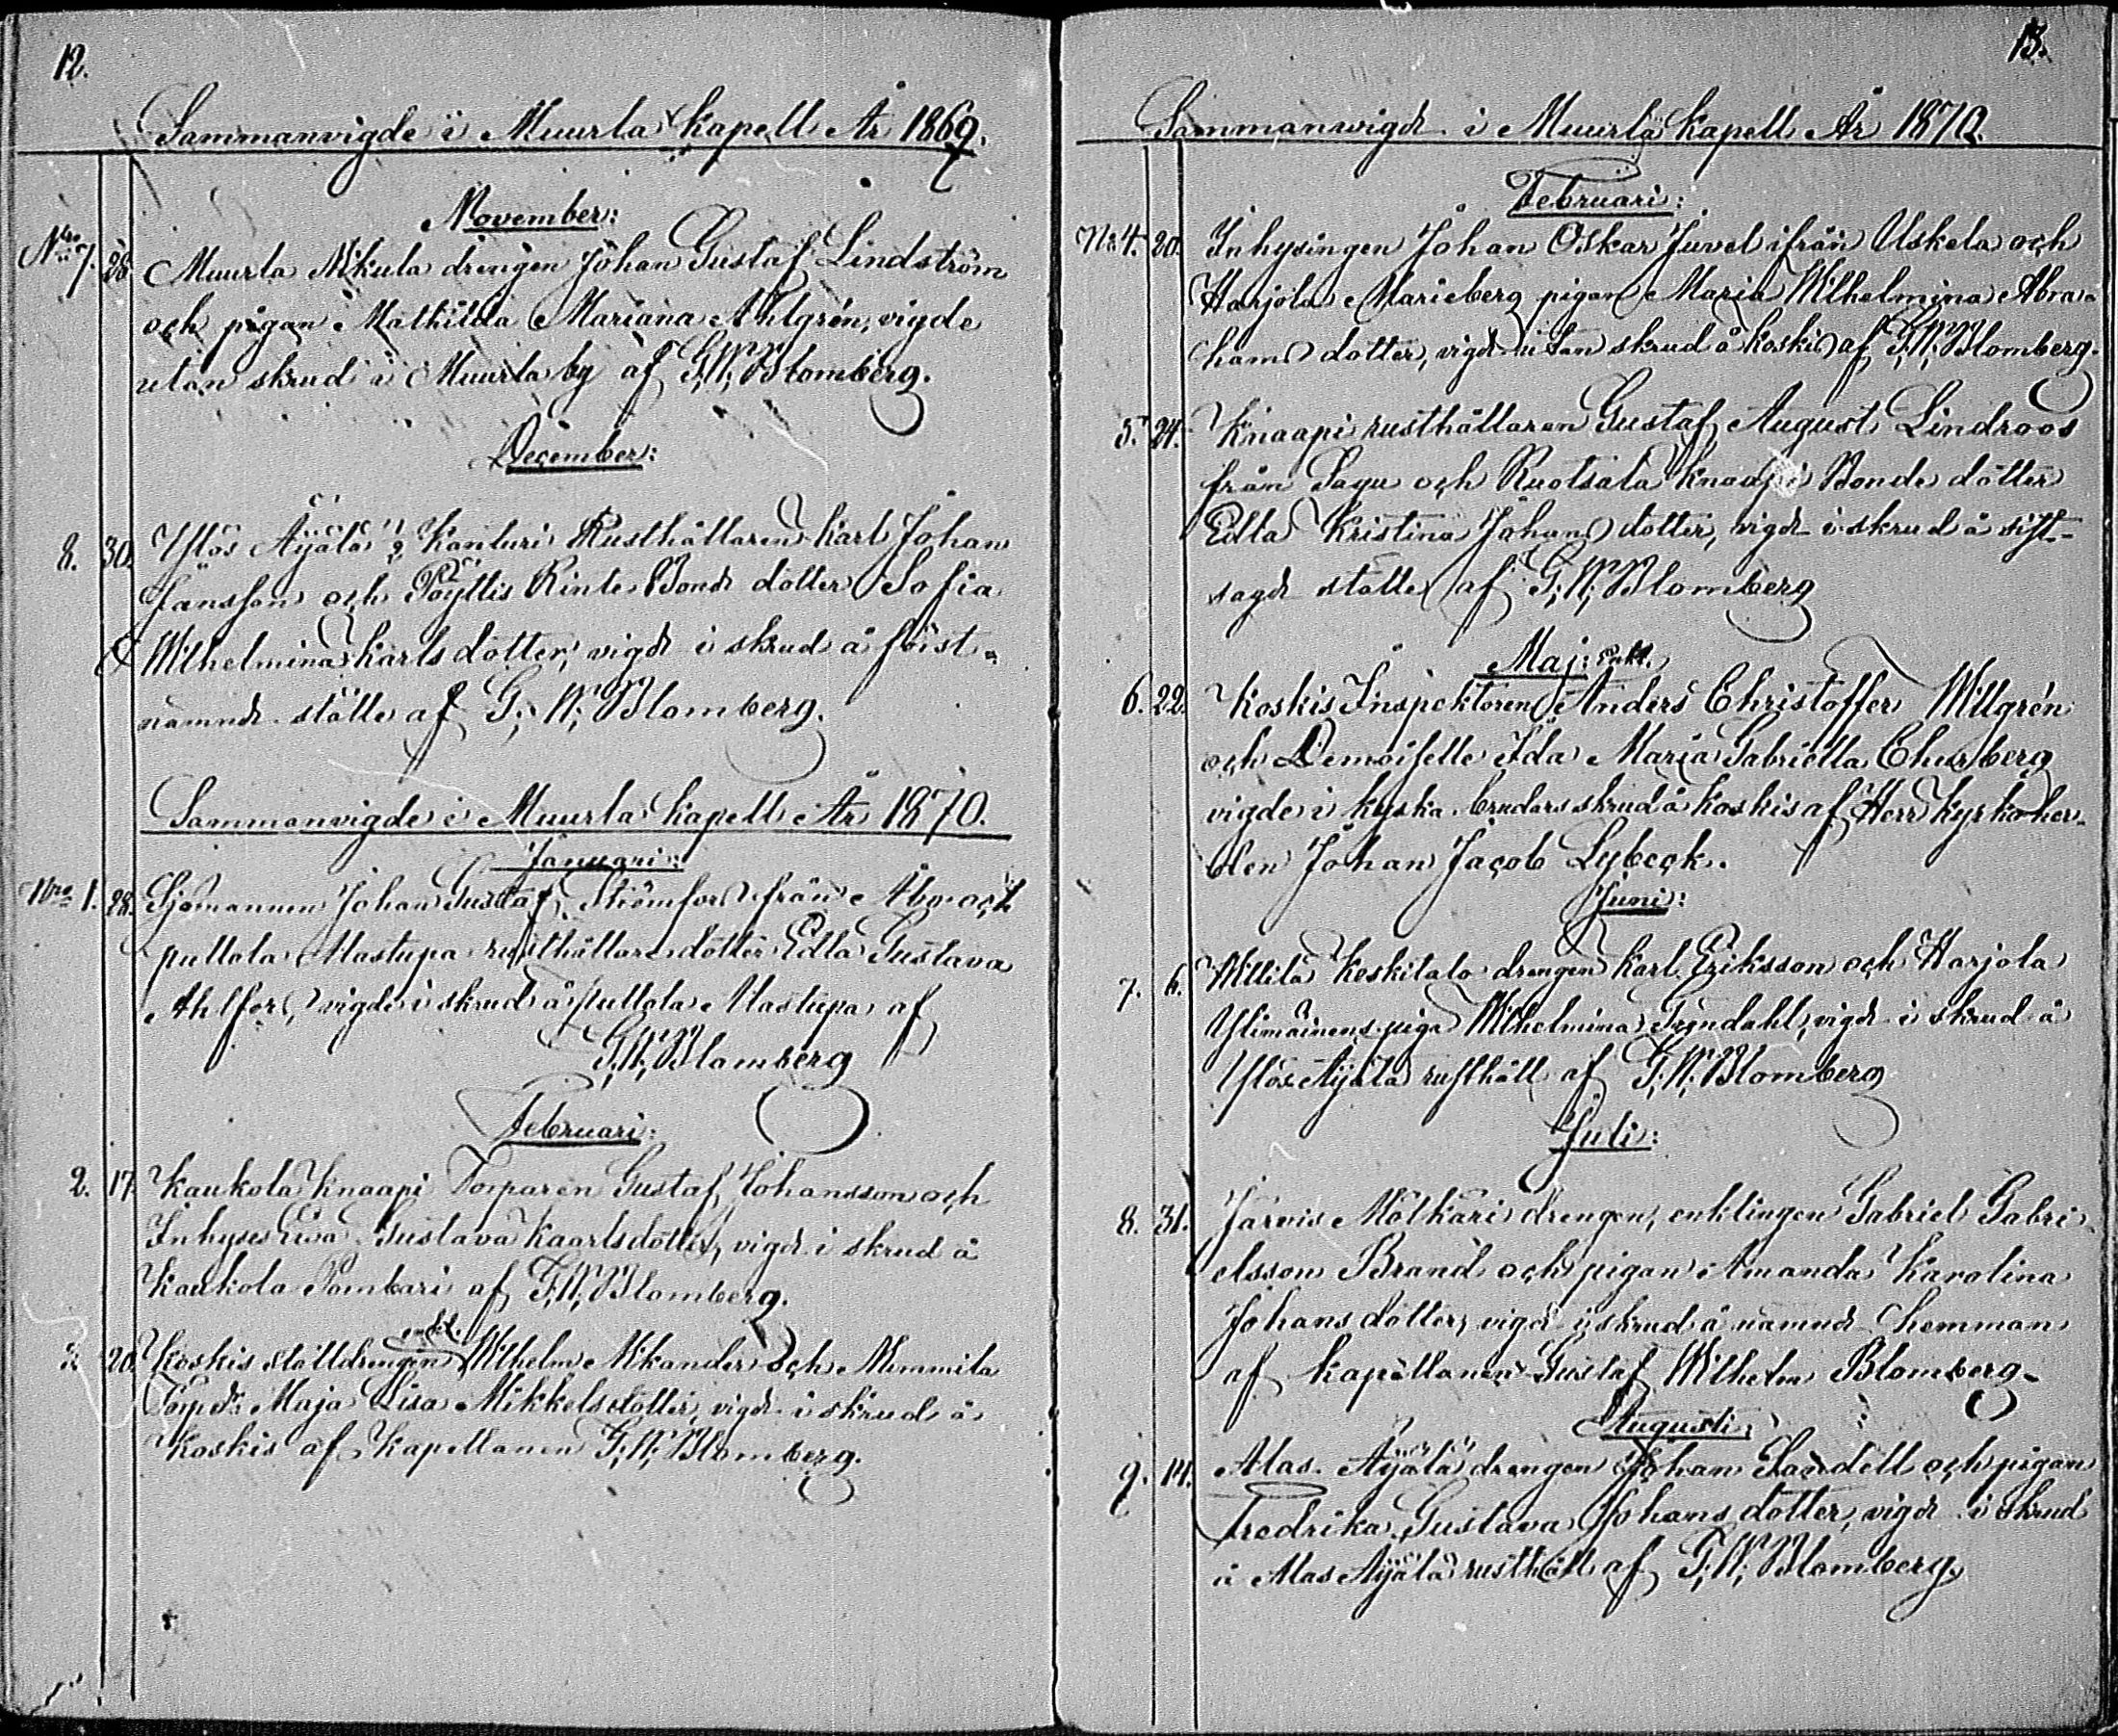 12.
Sammanvigde i Muurla Kapell År 1869.
November:
Nro 7. 28. Muurla Nikula drengen Johan Gustaf Lindström
och pigan Mathilda Mariana Ahlgrén, vigde
utan skrud i Muurla by af G. W. Blomberg.
December:
8. 30. Ylös Äijälä Kanturi Rusthållaren Karl Johan
Jansson och Pöytiis Rinte Bonde dotter Sofia
Wilhelmina Karlsdotter, vigde i skrud å först-
nämnde ställe af G. W. Blomberg.
Sammanvigde i Muurla Kapell År 1870.
Januari:
Nro 1. 28. Sjömannen Johan Gustaf Strömfors från Åbo och
Pullola Alastupa rusthållare dotter Edla Gustava
Ahlfors, vigde i skrud å Pullola Alastupa af
G. W. Blomberg
Februari:
2. 17. Kaukola Knaapi Torparen Gustaf Johansson och
Inhyses Eva Gustava Kaarlsdotter, vigde i skrud å
Kaukola Pombari af G. W. Blomberg.
3. 20. Koskis ställdrengen enkl. Wilhelm Nikander och Nummila
Torp. d. Maja Lisa Mikkelsdotter, vigde i skrud å
Koskis af Kapellanen G. W. Blomberg.
13.
Sammanvigde i Muurla Kapell År 1870.
Februari:
No 4. 20. Inhysingen Johan Oskar Juvel ifrån Uskela och
Harjola Marieberg pigan Maria Wilhelmina Abra-
hamsdotter, vigde utan skrud å Koskis af G. W. Blomberg.
5. 24. Knaapi rusthållaren Gustaf August Lindroos
från Sagu och Ruotsala Knaapi Bonde dotter
Edla Kristina Johansdotter, vigde i skrud å sist-
sagde ställe af G. W. Blomberg
Maj: enkl.
6. 22. Koskis Inspektoren Anders Christoffer Willgrén
och Demoiselle Ida Maria Gabriella Churberg
vigde i kyska brudars skrud å Koskis af Herr Kyrkoher-
den Johan Jacob Lybeck.
Juni:
7. 6. Willilä Keskitalo drengen Karl Eriksson och Harjola
Ylimäinens piga Wilhelmina Gröndahl, vigde i skrud å
Ylös Äijälä rusthåll af G. W. Blomberg
Juli:
8. 31. Järvis Mölkäri drengen, enklingen Gabriel Gabri-
elsson Brand och pigan Amanda Karolina
Johansdotter, vigde i skrud å nämnde hemman
af Kapellanen Gustaf Wilhelm Blomberg.
Augusti:
9. 14. Alas Äijälä drengen Johan Sandell och pigan
Fredrika Gustava Johansdotter, vigde i skrud
å Alas Äijälä rusthåll af G. W. Blomberg.